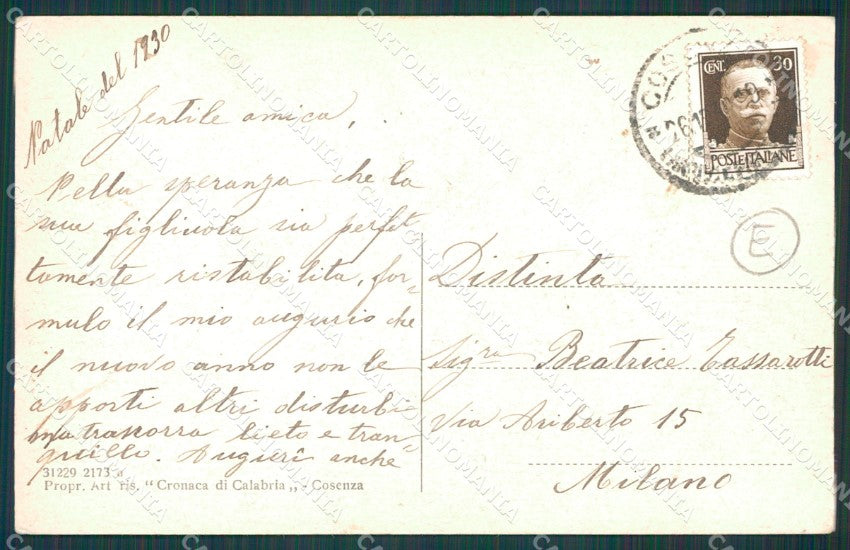 Natale del 1930
Gentile amica,
Nella speranza che la
sua figliuola sia perfet
tamente ristabilita, for-
mulo il mio augurio che
il nuovo anno non le
apporti altri disturbi
ma trascorra lieto e tran
quillo. Auguri anche
31229 2173
Propr. Art ris. "Cronaca di Calabria„ - Cosenza
CENT. 30
POSTE ITALIANE
E
Distinta
Sig.ra Beatrice Tassarotti
Via Ariberto 15
Milano
CARTOLINOMANIA